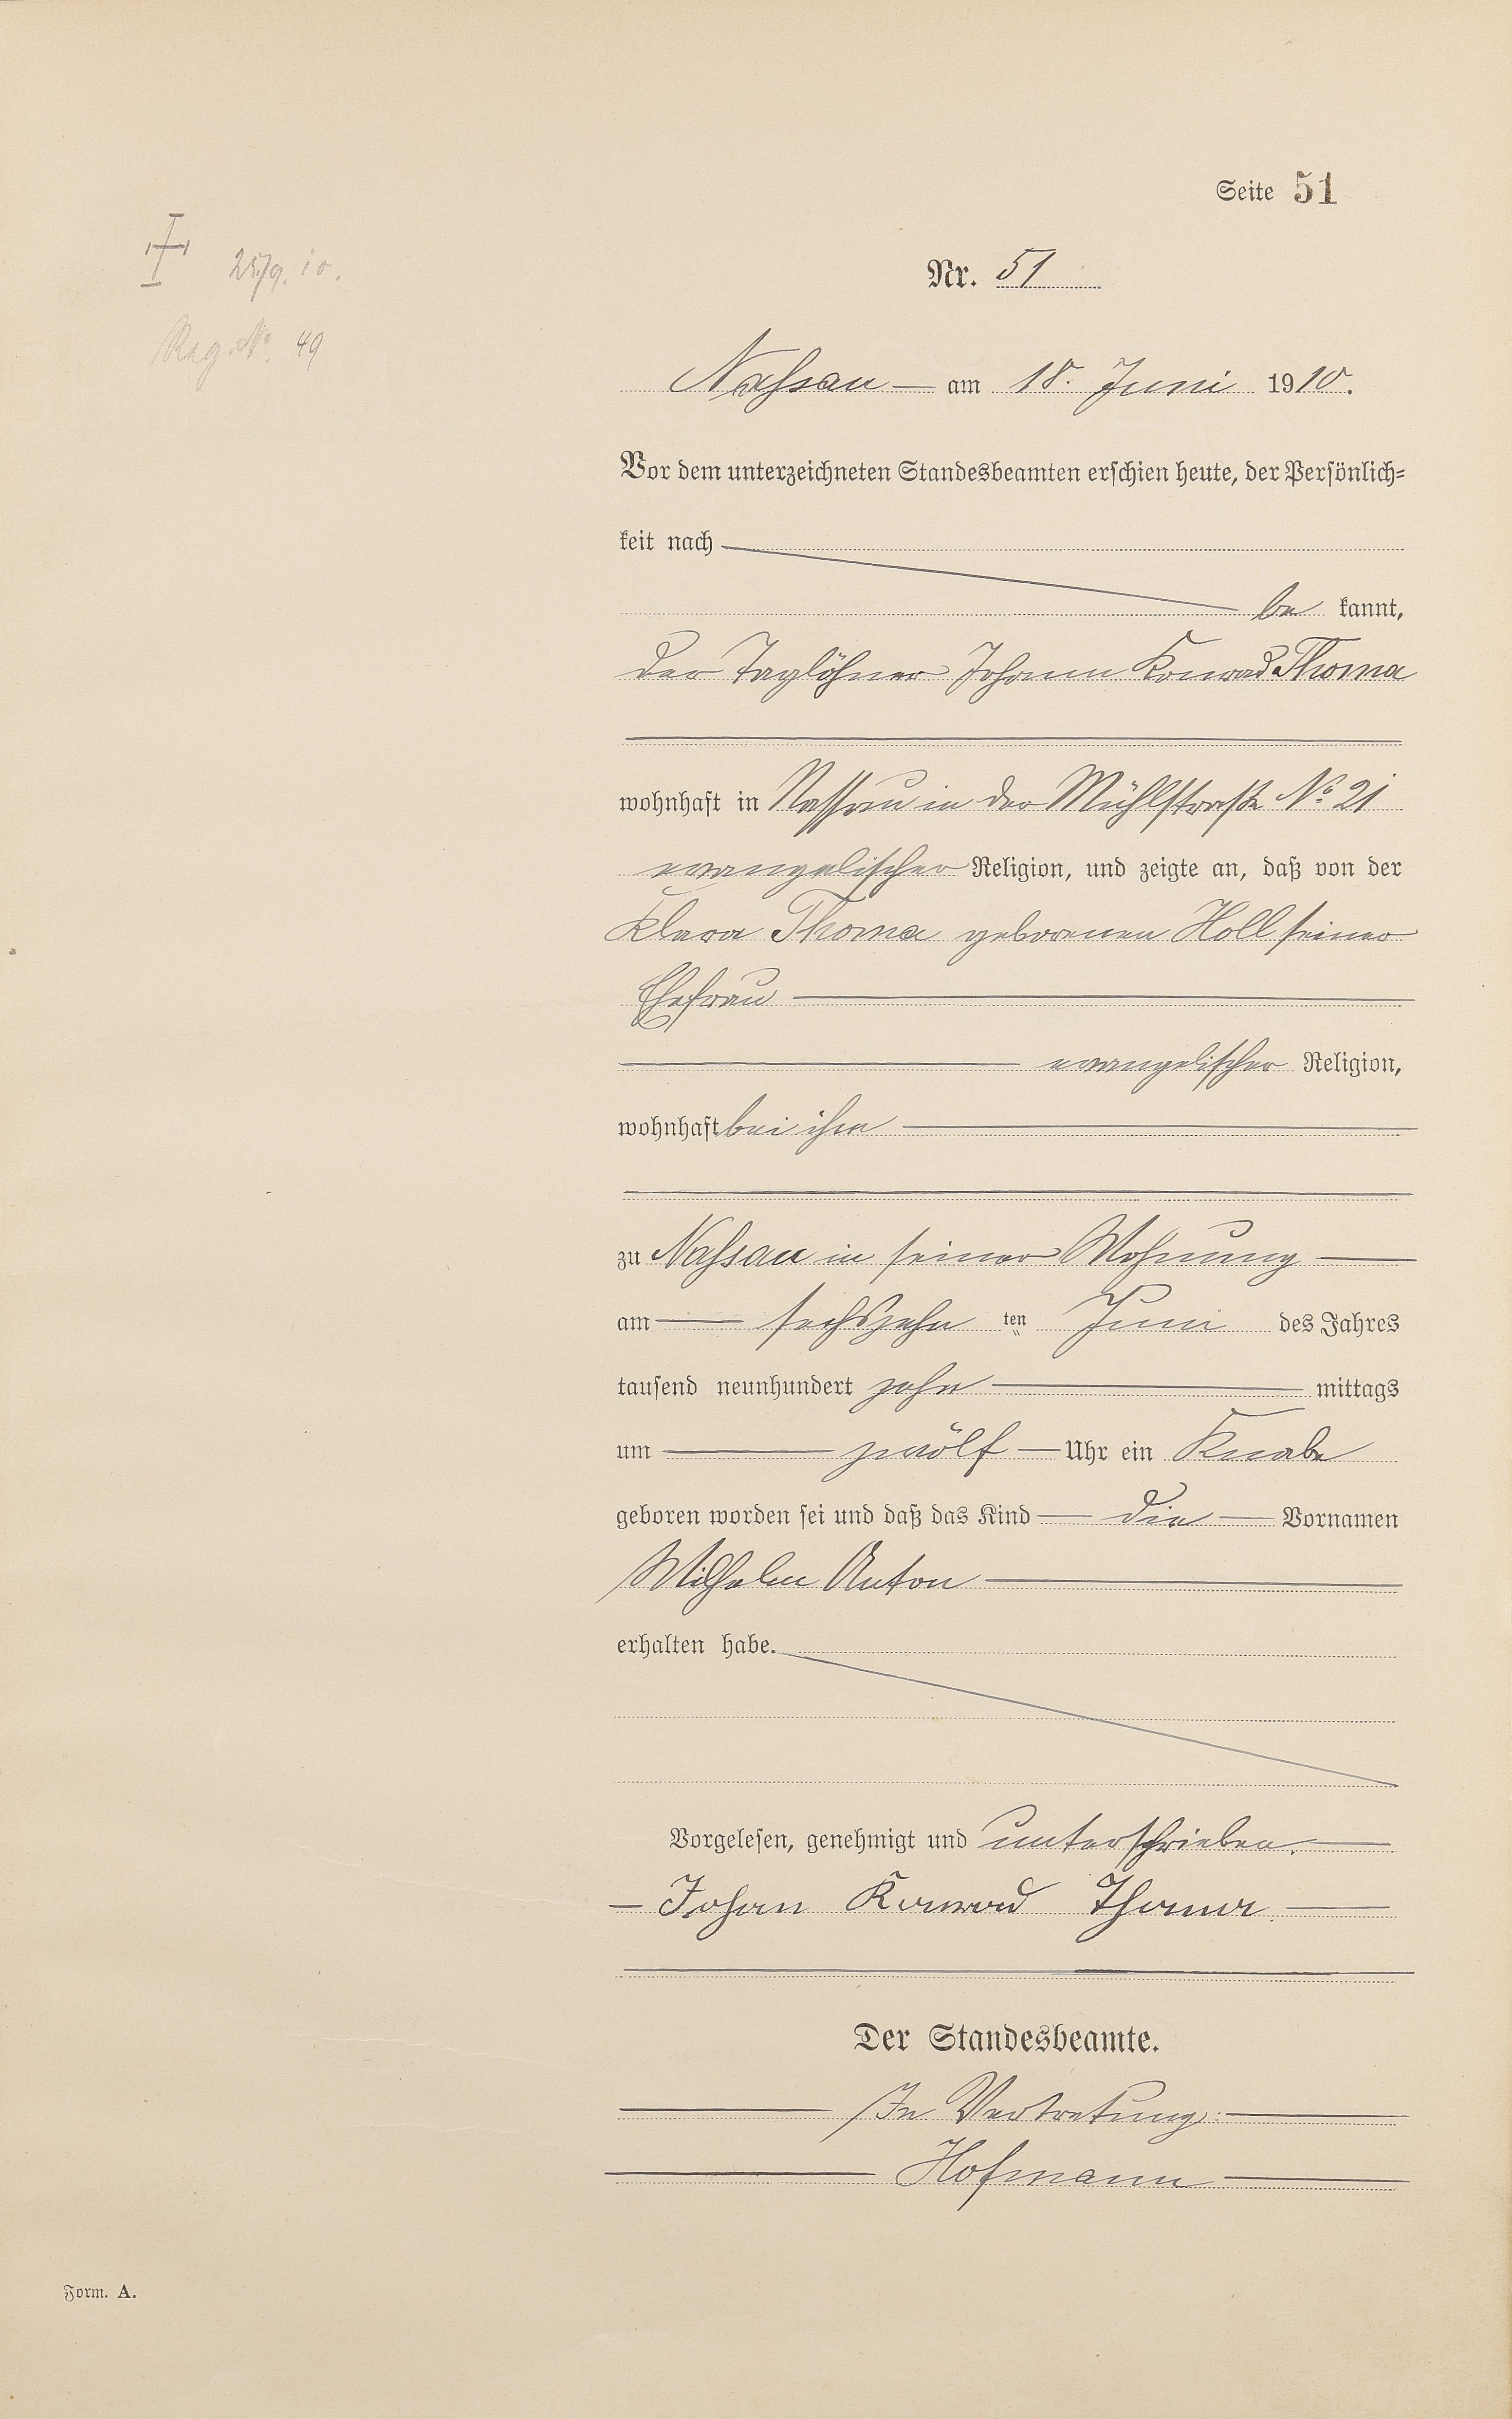 Seite 51
† 25/9. 10.
Nr. 51
Reg. No. 49
Nassau am 18. Juni 1910.
Vor dem unterzeichneten Standesbeamten erschien heute, der Persönlich-
keit nach
be kannt,
der Taglöhner Johann Konrad Thoma
wohnhaft in Nassau in der Mühlstraße No. 21
evangelischer Religion, und zeigte an, daß von der
Klara Thoma geborenen Holl seiner
Ehefrau
evangelischer Religion,
wohnhaft bei ihm
zu Nassau in seiner Wohnung
am sechszehn ten Juni des Jahres
tausend neunhundert zehn mittags
um zwölf Uhr ein Knabe
geboren worden sei und daß das Kind die Vornamen
Wilhelm Anton
erhalten habe.
Vorgelesen, genehmigt und unterschrieben.
Johan Konrad Thoma.
Der Standesbeamte.
In Vertretung:
Hofmann
Form. A.